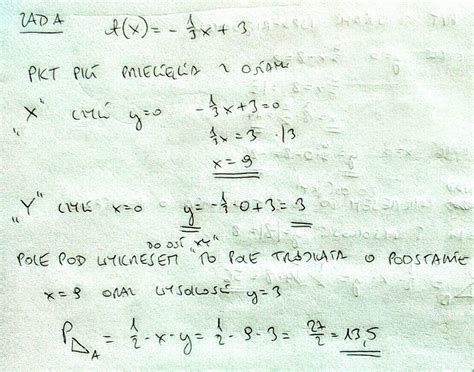 ZAD A f(x) = - 1/3 x + 3
PKT PRZECIĘCIA Z OSIAMI
"X" CZYLI y=0 - 1/3 x + 3 = 0
1/3 x = 3 ·/3
x = 9
"Y" CZYLI x=0 y = - 1/3 · 0 + 3 = 3
DO OSI "XY"
POLE POD WYKRESEM TO POLE TRÓJKĄTA O PODSTAWIE
x = 9 ORAZ WYSOKOŚĆ y = 3
P△A = 1/2 · x · y = 1/2 · 9 · 3 = 27/2 = 13,5